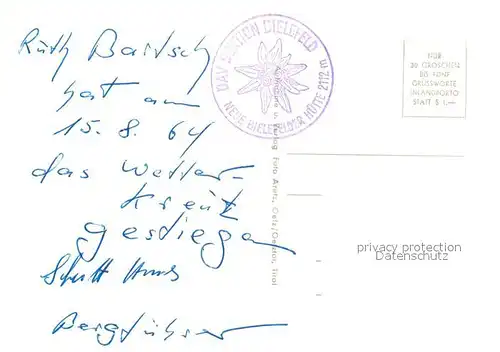 Ruth Bartsch
hat am
15.8.64
das Wetter-
Kreuz
gestiegen
Bergführer
DAV SEKTION BIELEFELD
NEUE BIELEFELDER HÜTTE 2112 m
NUR
20 GROSCHEN
FÜNF
GRUSSWORTE
INLANDPORTO
STATT S 1,—
Verlag Foto Tirol
privacy protection
Datenschutz